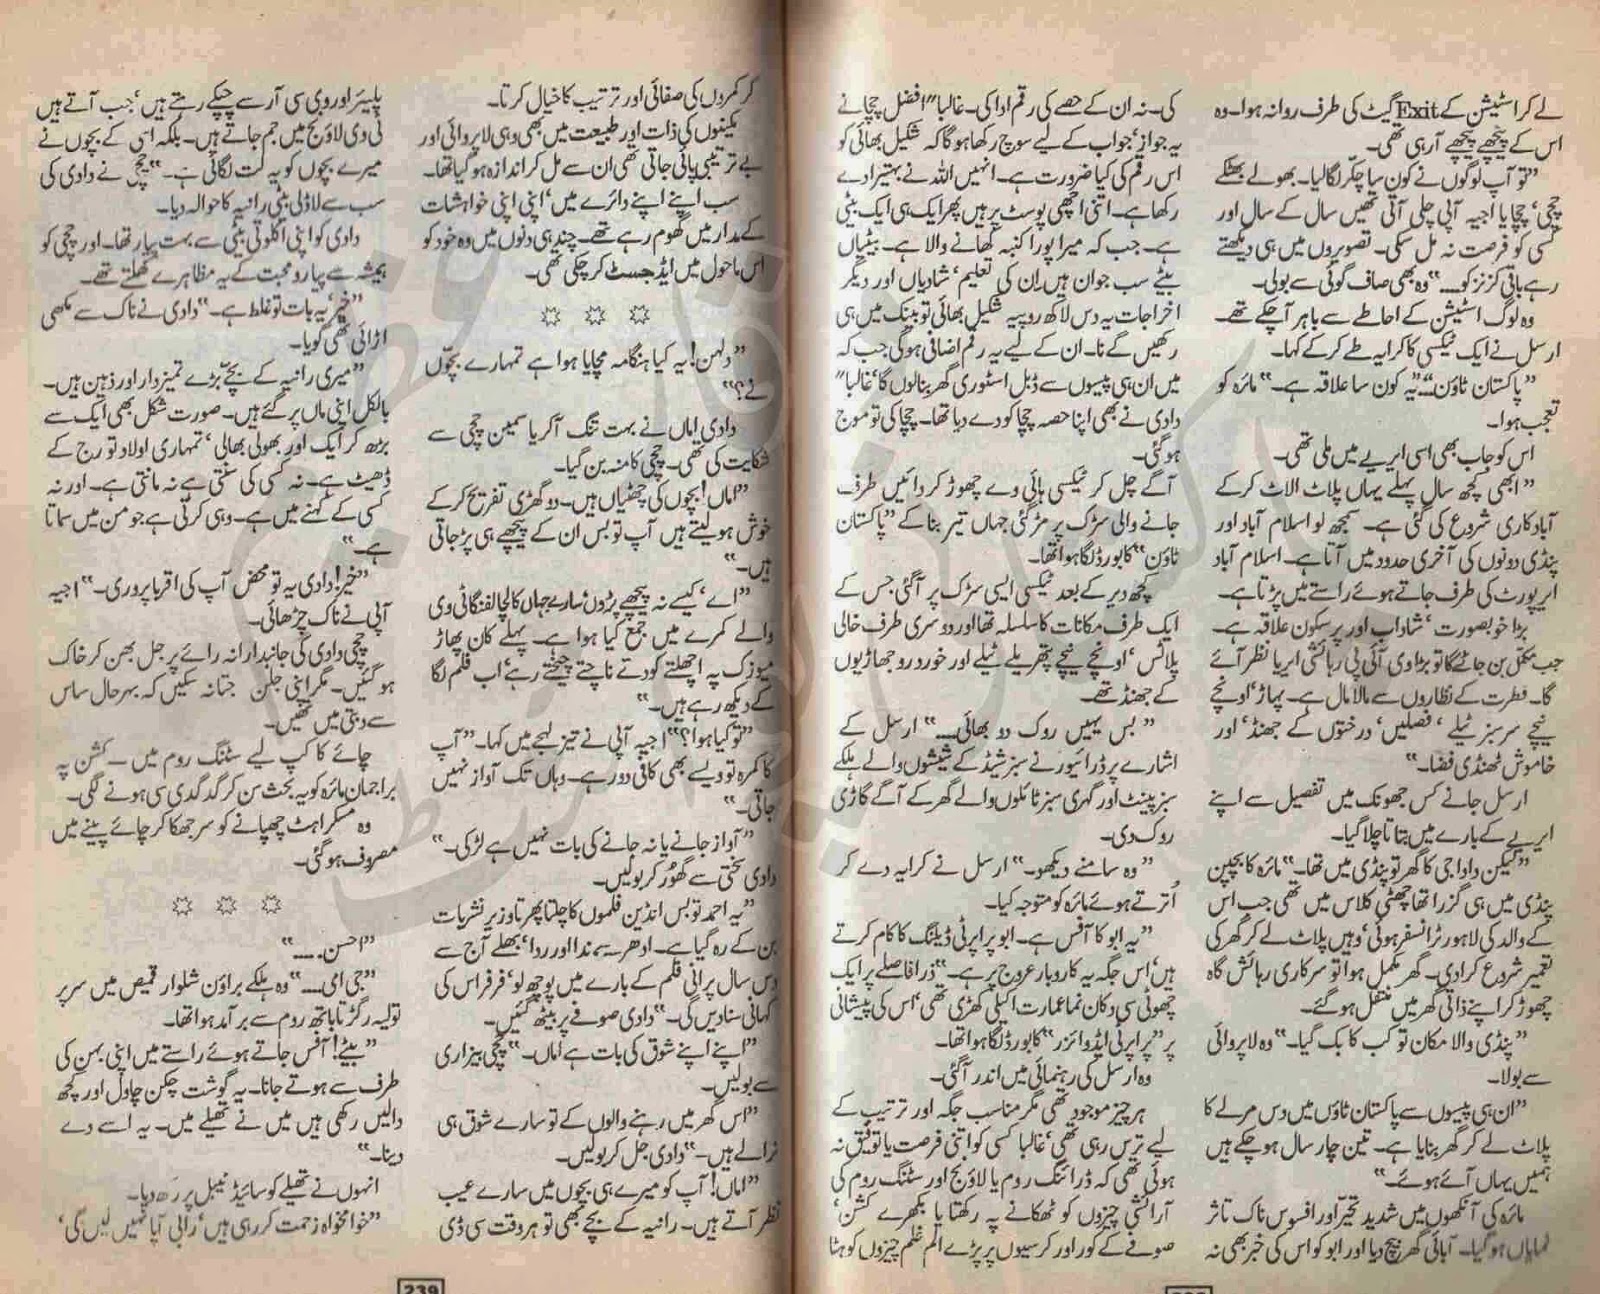 لے کر اسٹیشن کے Exit گیٹ کی طرف روانہ ہوا۔ وہ
اس کے پیچھے پیچھے آ رہی تھی۔
"تو آپ لوگوں نے کون سا چکر لگا لیا۔ بھولے بھٹکے
چچی، چچا یا اجیہ آپی چلی آتی تھیں سال کے سال اور
کسی کو فرصت نہ مل سکی۔ تصویروں میں ہی دیکھتے
رہے باقی کزنز کو۔۔۔" وہ بھی صاف گوئی سے بولی۔
وہ لوگ اسٹیشن کے احاطے سے باہر آچکے تھے۔
ارسل نے ایک ٹیکسی کا کرایہ طے کر کے کہا۔
"پاکستان ٹاؤن۔۔۔" "یہ کون سا علاقہ ہے۔" مائرہ کو
تعجب ہوا۔
اس کو جاب بھی اسی ایریے میں ملی تھی۔
"ابھی کچھ سال پہلے یہاں پلاٹ الاٹ کر کے
آبادکاری شروع کی گئی ہے۔ سمجھ لو اسلام آباد اور
پنڈی دونوں کی آخری حدود میں آتا ہے۔ اسلام آباد
ایرپورٹ کی طرف جاتے ہوئے راستے میں پڑتا ہے۔
بڑا خوبصورت، شاداب اور پرسکون علاقہ ہے۔
جب مکمل بن جائے گا تو بڑا وی آئی پی رہائشی ایریا نظر آئے
گا۔ فطرت کے نظاروں سے مالا مال ہے۔ پہاڑ، اونچے
نیچے سرسبز ٹیلے، فصلیں، درختوں کے جھنڈ، اور
خاموش ٹھنڈی فضا۔"
ارسل جانے کس جھونک میں تفصیل سے اپنے
ایریے کے بارے میں بتاتا چلا گیا۔
"لیکن دادا جی کا گھر تو پنڈی میں تھا۔" مائرہ کا بچپن
پنڈی میں ہی گزرا تھا چھٹی کلاس میں تھی جب اس
کے والد کی لاہور ٹرانسفر ہوئی، وہیں پلاٹ لے کر گھر کی
تعمیر شروع کرا دی۔ گھر مکمل ہوا تو سرکاری رہائش گاہ
چھوڑ کر اپنے ذاتی گھر میں منتقل ہو گئے۔
"پنڈی والا مکان تو کب کا بک گیا۔" وہ لاپروائی
سے بولا۔
"ان ہی پیسوں سے پاکستان ٹاؤن میں دس مرلے کا
پلاٹ لے کر گھر بنایا ہے۔ تین چار سال ہو چکے ہیں
ہمیں یہاں آئے ہوئے۔"
مائرہ کی آنکھوں میں شدید تحیر اور افسوس ناک تاثر
نمایاں ہو گیا۔ آبائی گھر بیچ دیا اور ابو کو اس کی خبر بھی نہ
کی۔ نہ ان کے حصے کی رقم ادا کی۔ غالباً "افضل چچا نے
یہ جواز، جواب کے لیے سوچ رکھا ہو گا کہ شکیل بھائی کو
اس رقم کی کیا ضرورت ہے۔ انہیں اللہ نے بہتیرا دے
رکھا ہے۔ اتنی اچھی پوسٹ پر ہیں پھر ایک ہی ایک بیٹی
ہے۔ جب کہ میرا پورا کنبہ کھانے والا ہے۔ بیٹیاں
بیٹے سب جوان ہیں ان کی تعلیم، شادیاں اور دیگر
اخراجات یہ دس لاکھ روپیہ شکیل بھائی تو بینک میں ہی
رکھیں گے نا۔ ان کے لیے یہ رقم اضافی ہو گی جب کہ
میں ان ہی پیسوں سے ڈبل اسٹوری گھر بنا لوں گا، غالباً"
دادی نے بھی اپنا حصہ چچا کو دے دیا تھا۔ چچا کی تو موج
ہو گئی۔
آگے چل کر ٹیکسی ہائی وے چھوڑ کر دائیں طرف
جانے والی سڑک پر مڑ گئی جہاں تیر بنا کے "پاکستان
ٹاؤن" کا بورڈ لگا ہوا تھا۔
کچھ دیر کے بعد ٹیکسی ایسی سڑک پر آ گئی جس کے
ایک طرف مکانات کا سلسلہ تھا اور دوسری طرف خالی
پلاٹس، اونچے نیچے پتھریلے ٹیلے اور خودرو جھاڑیوں
کے جھنڈ تھے۔
"بس یہیں روک دو بھائی۔۔۔" ارسل کے
اشارے پر ڈرائیور نے سبز شیڈ کے شیشوں والے ہلکے
سبز پینٹ اور گہری سبز ٹائلوں والے گھر کے آگے گاڑی
روک دی۔
"وہ سامنے دیکھو۔" ارسل نے کرایہ دے کر
اُترتے ہوئے مائرہ کو متوجہ کیا۔
"یہ ابو کا آفس ہے۔ ابو پراپرٹی ڈیلنگ کا کام کرتے
ہیں، اس جگہ یہ کاروبار عروج پر ہے۔" ذرا فاصلے پر ایک
چھوٹی سی دکان نما عمارت اکیلی کھڑی تھی، اس کی پیشانی
پر "پراپرٹی ایڈوائزر" کا بورڈ لگا ہوا تھا۔
وہ ارسل کی رہنمائی میں اندر آ گئی۔
ہر چیز موجود تھی مگر مناسب جگہ اور ترتیب کے
لیے ترس رہی تھی، غالباً کسی کو اتنی فرصت یا توفیق نہ
ہوئی تھی کہ ڈرائنگ روم یا لاؤنج اور سٹنگ روم کی
آرائشی چیزوں کو ٹھکانے پہ رکھتا یا بکھرے کشن،
صوفے کے کور اور کرسیوں پر پڑے الم غلم چیزوں کو ہٹا
کر کمروں کی صفائی اور ترتیب کا خیال کرتا۔
مکینوں کی ذات اور طبیعت میں بھی وہی لاپروائی اور
بے ترتیبی پائی جاتی تھی ان سے مل کر اندازہ ہو گیا تھا۔
سب اپنے اپنے دائرے میں، اپنی اپنی خواہشات
کے مدار میں گھوم رہے تھے۔ چند ہی دنوں میں وہ خود کو
اس ماحول میں ایڈجسٹ کر چکی تھی۔
☼ ☼ ☼
"دلہن! یہ کیا ہنگامہ مچایا ہوا ہے تمہارے بچوں
نے؟"
دادی اماں نے بہت تنگ آ کر یاسمین چچی سے
شکایت کی تھی۔ چچی کا منہ بن گیا۔
"اماں! بچوں کی چھٹیاں ہیں۔ دو گھڑی تفریح کر کے
خوش ہو لیتے ہیں آپ تو بس ان کے پیچھے ہی پڑ جاتی
ہیں۔"
"اے، کیسے نہ پیچھے پڑوں، سارے جہاں کا لچا لفنگا ٹی وی
والے کمرے میں جمع کیا ہوا ہے۔ پہلے کان پھاڑ
میوزک پہ اچھلتے کودتے ناچتے چیختے رہے، اب فلم لگا
کے دیکھ رہے ہیں۔"
"تو کیا ہوا؟" اجیہ آپی نے تیز لہجے میں کہا۔ "آپ
کا کمرہ تو ویسے بھی کافی دور ہے۔ وہاں تک آواز نہیں
جاتی۔"
"آواز جانے یا نہ جانے کی بات نہیں ہے لڑکی۔"
دادی سختی سے گھور کر بولیں۔
"یہ احمد تو بس انڈین فلموں کا چلتا پھرتا وزیر نشریات
بن کے رہ گیا ہے۔ ادھر سے ندا اور ردا، بھلے آج سے
دس سال پرانی فلم کے بارے میں پوچھ لو، فرفر اس کی
کہانی سنا دیں گی۔" دادی صوفے پر بیٹھ گئیں۔
"اپنے اپنے شوق کی بات ہے اماں۔" چچی بیزاری
سے بولیں۔
"اس گھر میں رہنے والوں کے تو سارے شوق ہی
نرالے ہیں۔" دادی جل کر بولیں۔
"اماں! آپ کو میرے ہی بچوں میں سارے عیب
نظر آتے ہیں۔ رانیہ کے بچے بھی تو ہر وقت سی ڈی
پلیئر اور وی سی آر سے چپکے رہتے ہیں، جب آتے ہیں
ٹی وی لاؤنج میں جم جاتے ہیں۔ بلکہ اسی کے بچوں نے
میرے بچوں کو یہ لت لگائی ہے۔" چچی نے دادی کی
سب سے لاڈلی بیٹی رانیہ کا حوالہ دیا۔
دادی کو اپنی اکلوتی بیٹی سے بہت پیار تھا۔ اور چچی کو
ہمیشہ سے پیار و محبت کے یہ مظاہرے کھلتے تھے۔
"خیر، یہ بات تو غلط ہے۔" دادی نے ناک سے مکھی
اڑائی تھی گویا۔
"میری رانیہ کے بچے بڑے تمیزدار اور ذہین ہیں۔
بالکل اپنی ماں پر گئے ہیں۔ صورت شکل بھی ایک سے
بڑھ کر ایک اور بھولی بھالی، تمہاری اولاد تو رج کے
ڈھیٹ ہے۔ نہ کسی کی سنتی ہے نہ مانتی ہے۔ اور نہ
کسی کے کہنے میں ہے۔ وہی کرتی ہے جو من میں سماتا
ہے۔"
"خیر! دادی یہ تو محض آپ کی اقربا پروری۔" اجیہ
آپی نے ناک چڑھائی۔
چچی دادی کی جانبدارانہ رائے پر جل بھن کر خاک
ہو گئیں۔ مگر اپنی جلن جتا نہ سکیں کہ بہرحال ساس
سے دبتی میں تھیں۔
چائے کا کپ لیے سٹنگ روم میں ۔۔ کشن پہ
براجمان مائرہ کو یہ بحث سن کر گدگدی سی ہونے لگی۔
وہ مسکراہٹ چھپانے کو سر جھکا کر چائے پینے میں
مصروف ہو گئی۔
☼ ☼ ☼
"احسن۔۔۔۔"
"جی امی۔۔۔" وہ ہلکے براؤن شلوار قمیص میں سر پر
تولیہ رگڑتا باتھ روم سے برآمد ہوا تھا۔
"بیٹے! آفس جاتے ہوئے راستے میں اپنی بہن کی
طرف سے ہوتے جانا۔ یہ گوشت چکن چاول اور کچھ
دالیں رکھی ہیں میں نے تھیلے میں۔ یہ اسے دے
دینا۔"
انہوں نے تھیلے کو سائیڈ ٹیبل پر رکھ دیا۔
"خوامخواہ زحمت کر رہی ہیں، رابی آپا نہیں لیں گی،
239